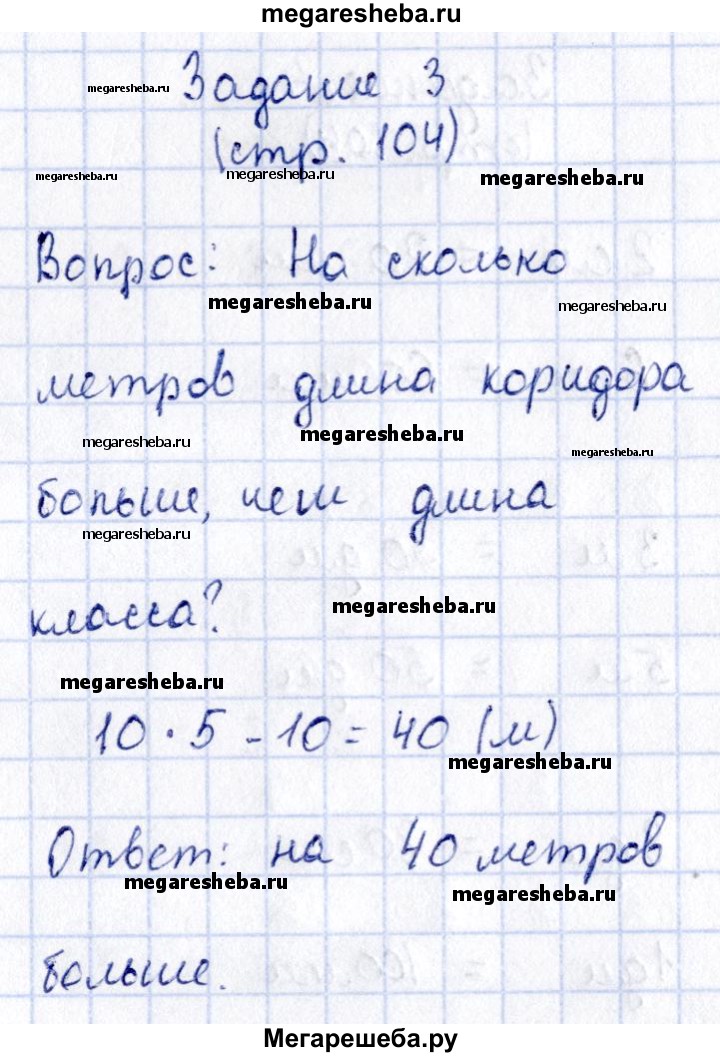 megaresheba.ru
megaresheba.ru Задание 3
(стр. 104)
megaresheba.ru megaresheba.ru megaresheba.ru
Вопрос: На сколько
megaresheba.ru megaresheba.ru
метров длина коридора
megaresheba.ru megaresheba.ru megaresheba.ru
больше, чем длина
megaresheba.ru
класса? megaresheba.ru
megaresheba.ru
10 · 5 - 10 = 40 (м)
megaresheba.ru
Ответ: на 40 метров
megaresheba.ru megaresheba.ru
больше.
Мегарешеба.ру